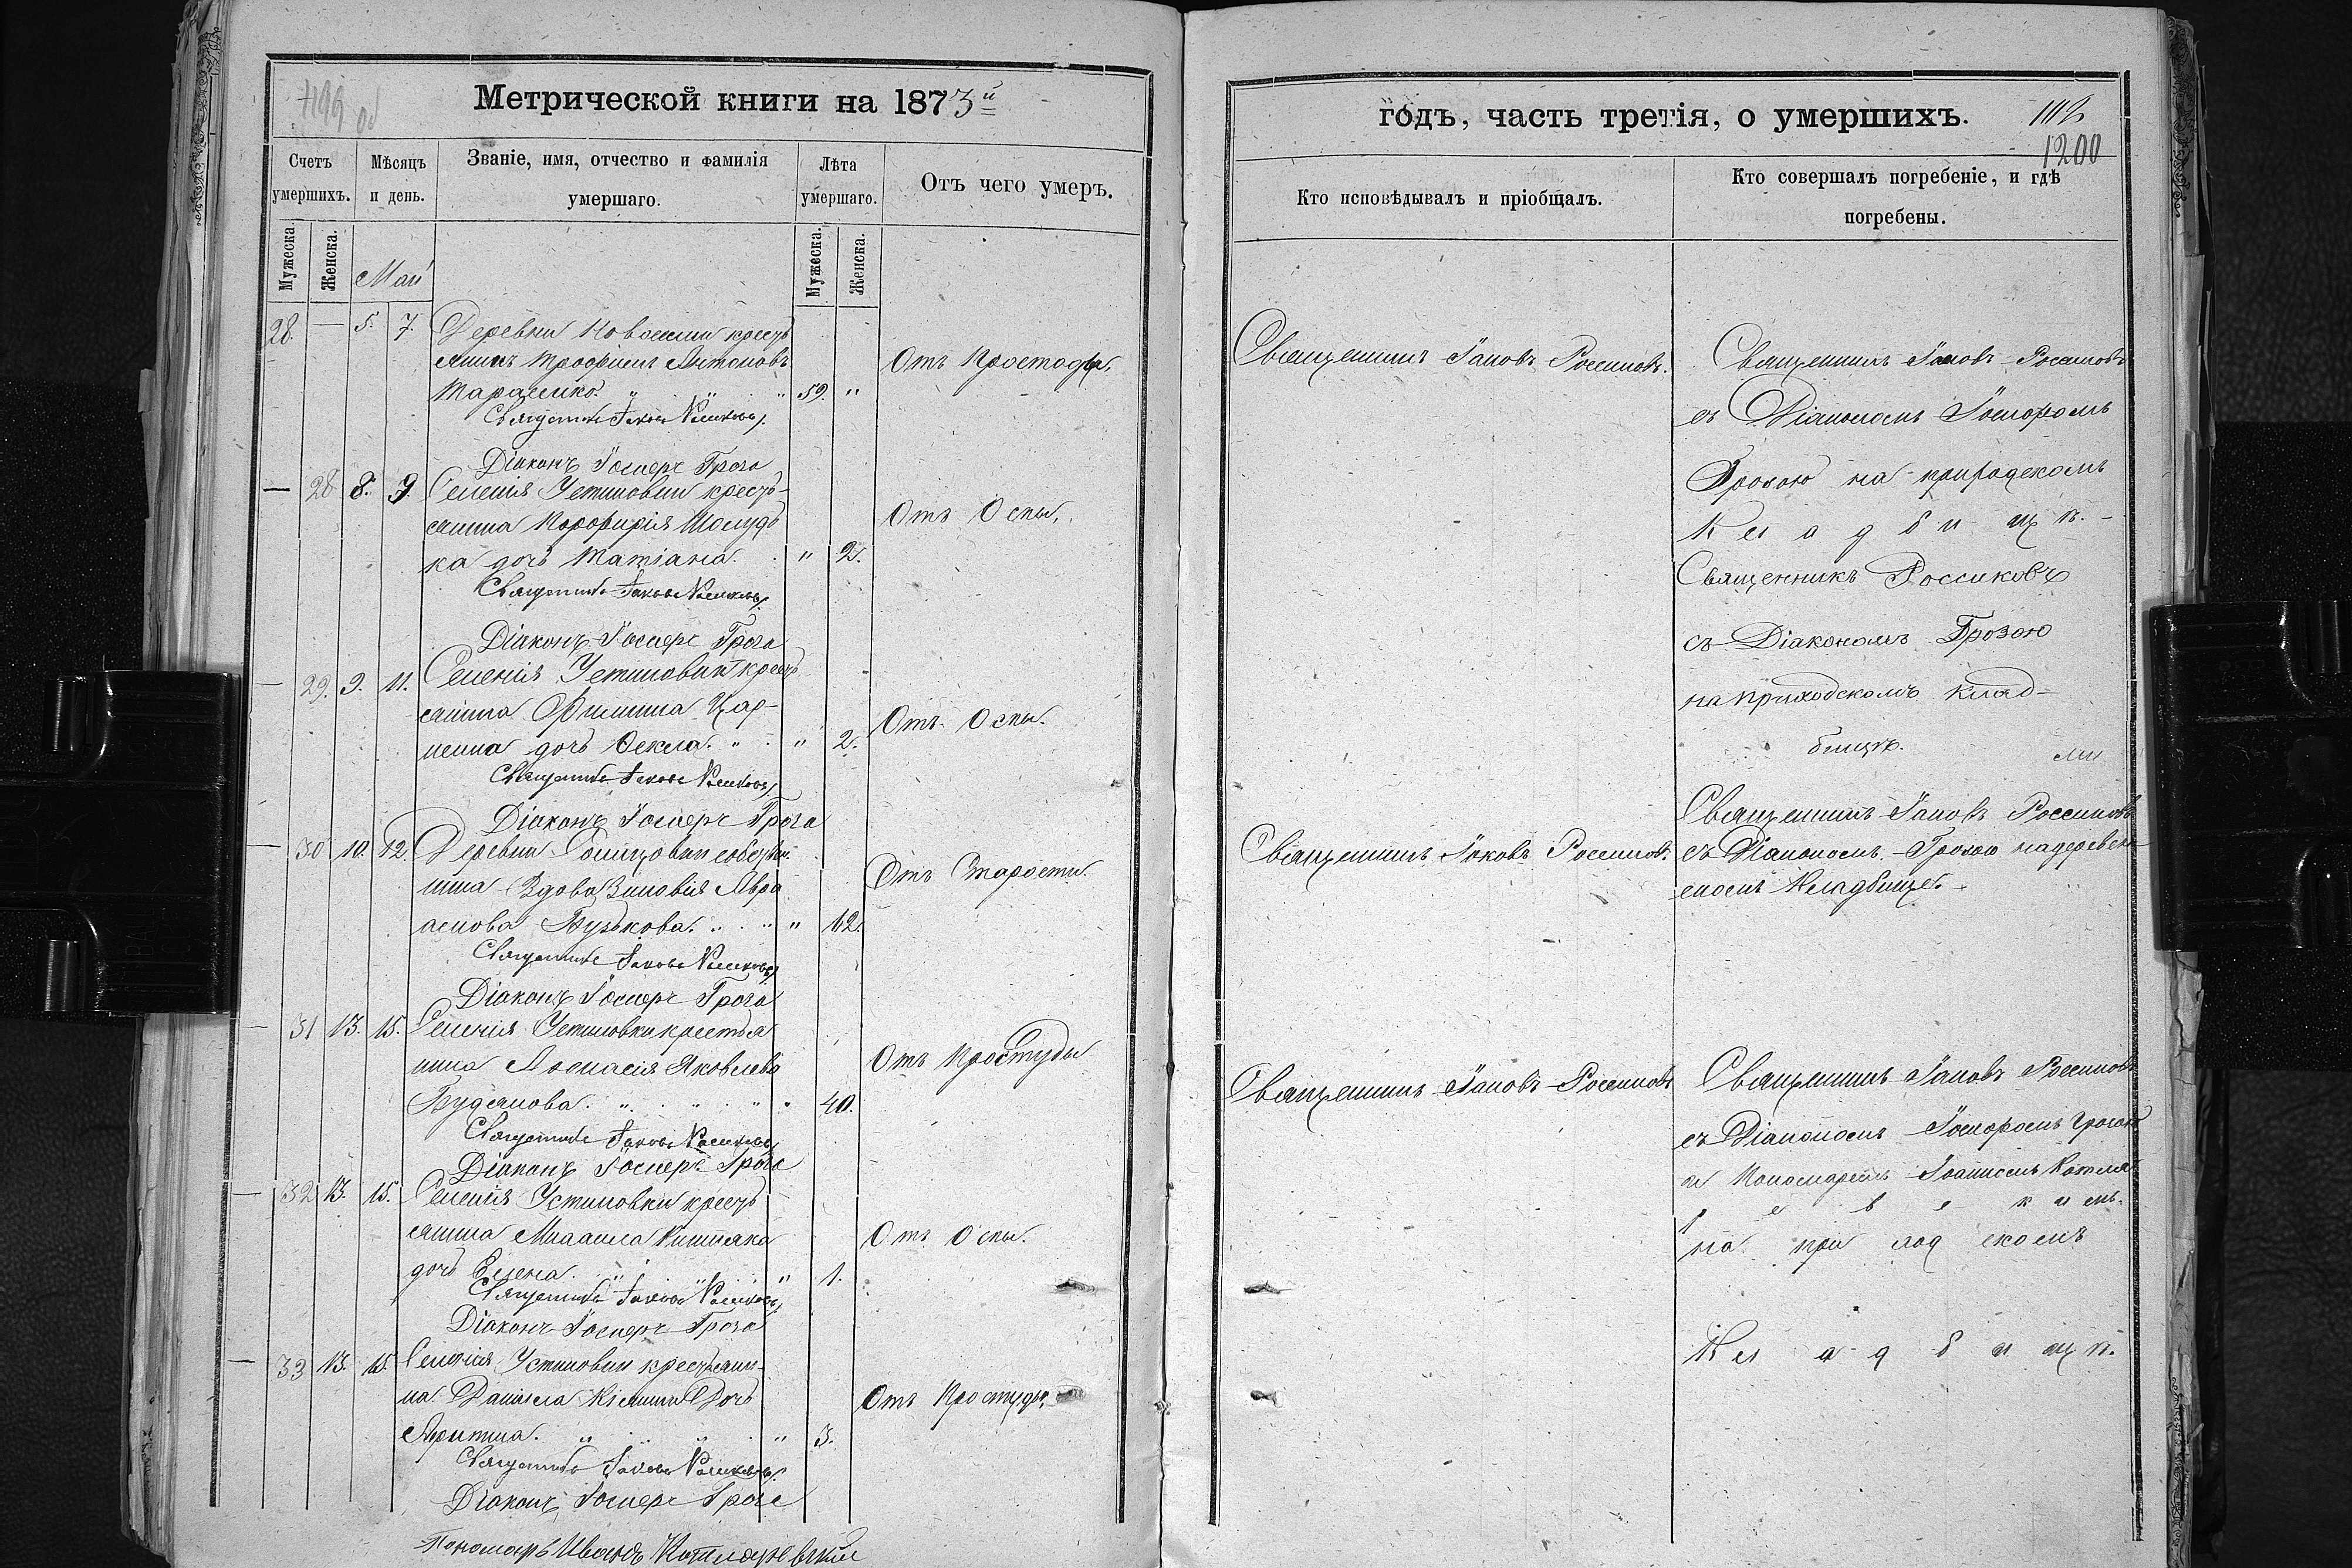 Метрической книги на 1873й
Счетъ умершихъ.
Мѣсяцъ и день.
Званіе, имя, отчество и фамилія умершаго.
Лѣта умершаго.
Отъ чего умеръ.
Мужеска.
Женска.
Май
Мужеска.
Женска.
28. — 5. 7. Деревни крестъ
янинъ Трофимъ Антоновъ
Отъ Простоды.
Тараненко. " " " 59. "
Священникъ Іаковъ Россиковъ
Діаконъ Гроза
— 28 8. 9. Селенія Устиновки крестъ-
янина Порфирія
Отъ Оспы.
ка дочь Татіана. " 2.
Священникъ Іаковъ Россиковъ
Діаконъ Гроза
— 29. 9. 11. Селенія Устиновки крестъ
янина Филиппа
Отъ Оспы.
дочь Ѳекла. " " 2.
Священникъ Іаковъ Россиковъ
Діаконъ Гроза
— 30 10. 12. Деревни
Вдова Зиновія Авра
Отъ Старости
амова Бузькова. " " 62.
Священникъ Іаковъ Россиковъ
Діаконъ Гроза
— 31 13. 15. Селенія Устиновки крестья
нина Аѳонасія Яковлева
Отъ Простуды
" " " 40.
Священникъ Іаковъ Россиковъ
Діаконъ Гроза
— 32 13. 15. Селенія Устиновки крестъ
янина Михаила
Отъ Оспы.
дочь Елена. " " " 1.
Священникъ Іаковъ Россиковъ
Діаконъ Гроза
— 33 13. 15. Селенія Устиновки крестьяни-
на Даніила Дочь
Отъ Простуды.
" " " 3.
Священникъ Іаковъ Россиковъ
Діаконъ Гроза
Пономарь Иванъ Котляревский
годъ, часть третія, о умершихъ.
1200
Кто исповѣдывалъ и пріобщалъ.
Кто совершалъ погребеніе, и гдѣ погребены.
Священникъ Іаковъ Россиковъ.
Священникъ Іаковъ Россиковъ
съ Діакономъ
Грозою на приходскомъ
Кладбищѣ.
Священникъ Россиковъ
съ Діакономъ Грозою
на приходскомъ клад-
бищѣ.
Священникъ Іаковъ Россиковъ.
Священникъ Іаковъ Россиковъ
съ Діакономъ Грозою на деревен
скомъ Кладбище.
Священникъ Іаковъ Россиковъ
Священникъ Іаковъ Россиковъ
съ Діакономъ Грозою
и Пономаремъ Іоанномъ Котля
ревскимъ
на приходскомъ
Кладбищѣ.